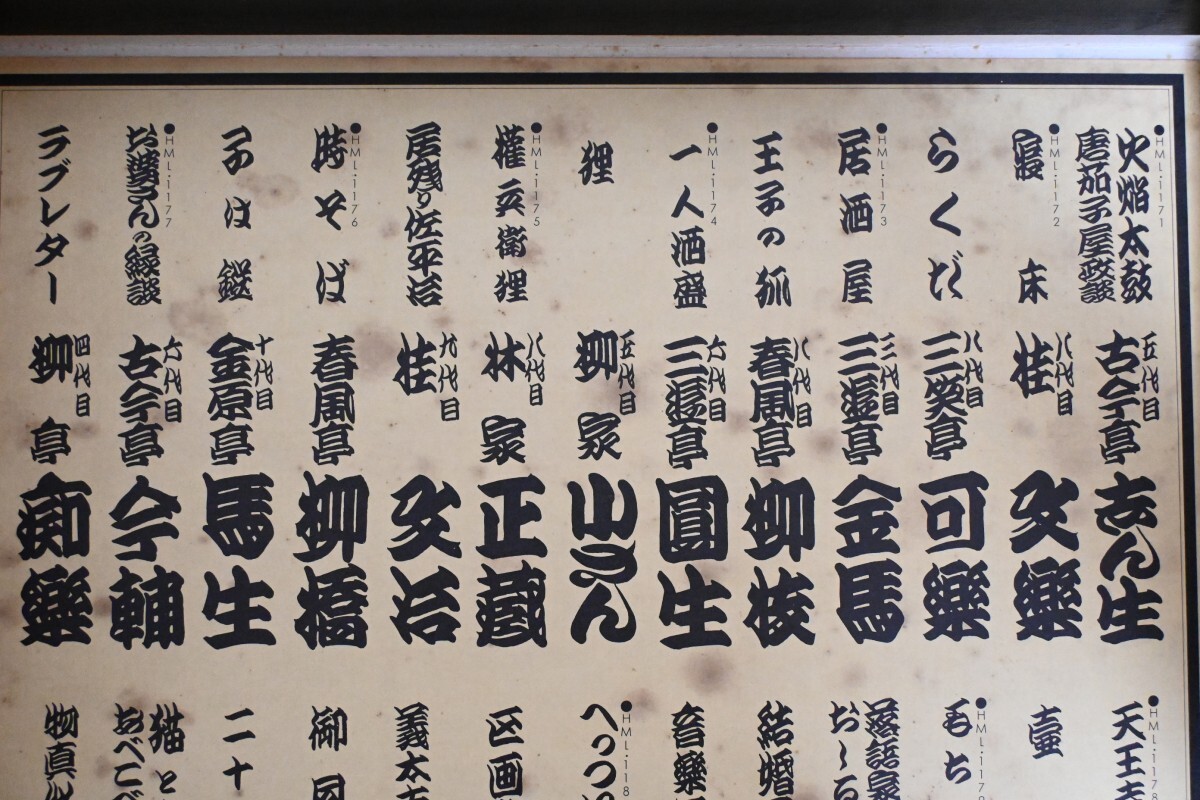 ●HML・1171
火焰太鼓
唐茄子屋政談
五代目
古今亭
志ん生
●HML・1172
寝床
八代目
桂
文樂
らくだ
八代目
三笑亭
可樂
●HML・1173
居酒屋
三代目
三遊亭
金馬
王子の狐
八代目
春風亭
柳枝
●HML・1174
一人酒盛
六代目
三遊亭
圓生
狸
五代目
柳家
小さん
●HML・1175
権兵衛狸
八代目
林家
正蔵
居残り佐平治
九代目
桂
文治
●HML・1176
時そば
春風亭
柳橋
子は鎹
十代目
金原亭
馬生
●HML・1177
お婆さんの縁談
六代目
古今亭
今輔
ラブレター
四代目
柳亭
痴樂
●HML・1178
天王
壷
●HML・117
もち
落語家
お〜る
結婚
音樂
●HML・118
へっつ
区画
義太
御
二十
猫と
あべこべ
物真